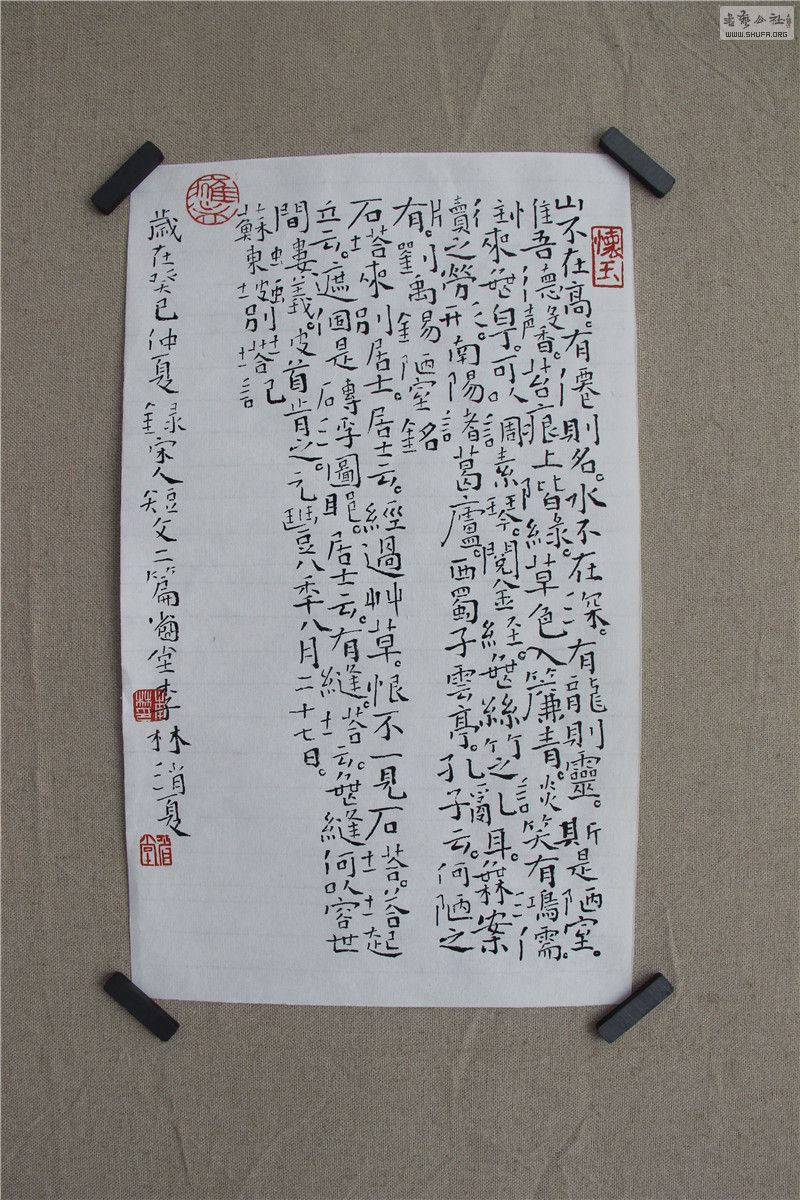 懷玉
山不在高。有僊則名。水不在深。有龍則靈。斯是陋室。
惟吾德馨。苔痕上階綠。草色入簾青。談笑有鴻儒。
往來無白丁。可以調素琴。閱金經。無絲竹之亂耳。無案
牘之勞形。南陽諸葛廬。西蜀子雲亭。孔子云。何陋之
有。劉禹錫陋室銘
石塔來別居士。居士云。經過草草。恨不一見石塔。塔起
立云。遮個是磚浮圖耶。居士云。有縫塔。云。無縫何以容世
間螻蟻。坡首肯之。元豐八秊八月二十七日。
蘇東坡別塔記
歲在癸巳仲夏錄宋人短文二篇堂李林消夏
書藝公社
WWW.SHUFA.ORG